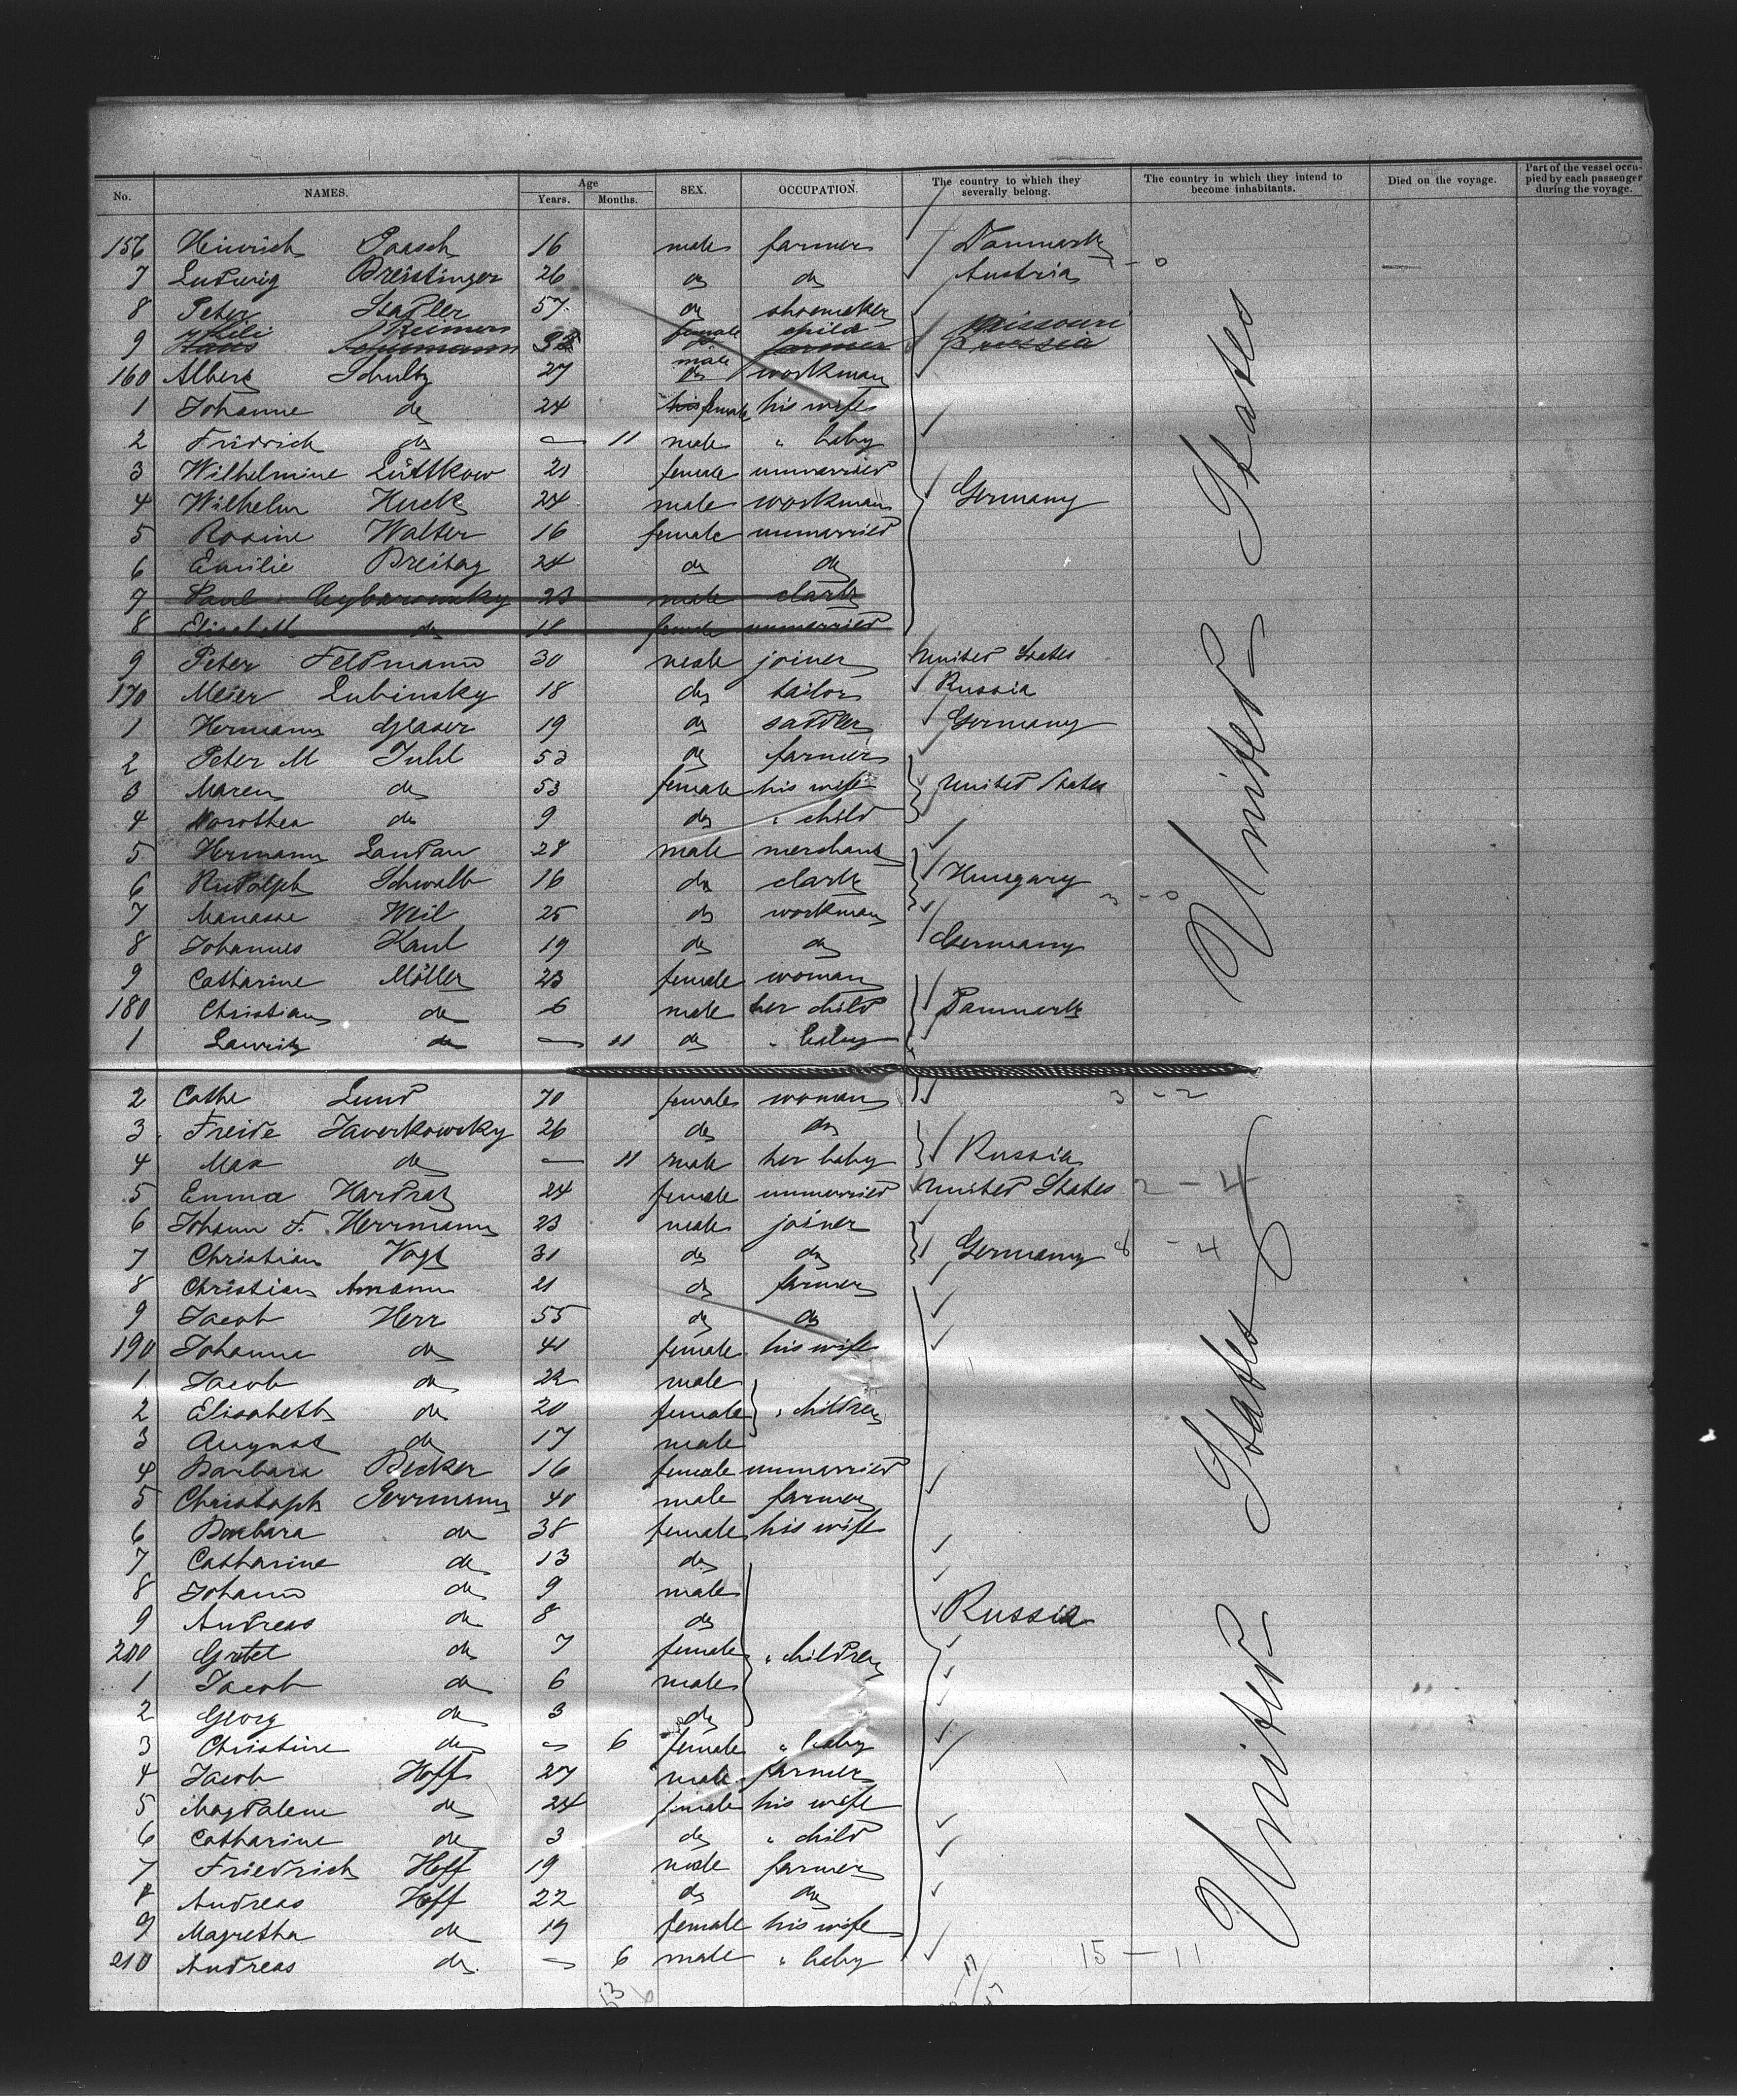 No. NAMES. Age Years. Months. SEX. OCCUPATION. The country to which they severally belong. The country in which they intend to become inhabitants. Died on the voyage. Part of the vessel occupied by each passenger during the voyage.
156 Heinrich Paasch 16 male farmer Danmark
7 Ludwig Breistinger 26 do do Austria 1 - 0
8 Peter Stapler 57 do shoemaker
Reimers female child Missouri
9 Hans Schumann farmer Prussia
160 Albert Schultz 27 male do workman
1 Johanne do 24 his female his wife
2 Fridrich do — 11 male " baby
3 Wilhelmine Lüttkow 21 female unmarried
4 Wilhelm Huck 24 male workman Germany
5 Rosine Walter 16 female unmarried
6 Emilie Breitag 24 do do
7 Paul 23 male clark
8 Elisabeth do 18 female unmarried
9 Peter Feldmann 30 male joiner United States
170 Meier Lubinsky 18 do tailor Russia
1 Hermann Glaser 19 do saddler Germany
2 Peter M Juhl 53 do farmer
3 Maren do 53 female his wife United States
4 Dorothea do 9 do " child
5 Hermann Landau 28 male merchant
6 Rudolph Schwalb 16 do clark Hungary 3 - 0
7 Manasse Weil 25 do workman
8 Johannes Kaul 19 do do Germany
9 Catharine Möller 23 female woman
180 Christian do 6 male her child Danmark
1 Lauritz do — 11 do " baby
United States
2 Cathe Lund 70 female woman 3 - 2
3 Freide Javerkowsky 26 do do
4 Max do — 11 male her baby Russia
5 Emma Hardrat 24 female unmarried United States 2 - 4
6 Johann F. Herrmann 23 male joiner
7 Christian Vogt 31 do do Germany 8 - 4
8 Christian Amann 21 do farmer
9 Jacob Herr 55 do do
190 Johanna do 41 female his wife
1 Jacob do 22 male
2 Elisabeth do 20 female " children
3 August do 17 male
4 Barbara Becker 16 female unmarried
5 Christoph Gerrmann 40 male farmer
6 Barbara do 38 female his wife
7 Catharine do 13 do
8 Johann do 9 male
9 Andreas do 8 do Russia
200 Gretel do 7 female " children
1 Jacob do 6 male
2 Georg do 3 do
3 Christine do — 6 female " baby
4 Jacob Hoff 27 male farmer
5 Magdalene do 24 female his wife
6 Catharine do 3 do " child
7 Friedrich Hoff 19 male farmer
8 Andreas Hoff 22 do do
9 Magretha do 19 female his wife
210 Andreas do — 6 male " baby 15 - 11
United States